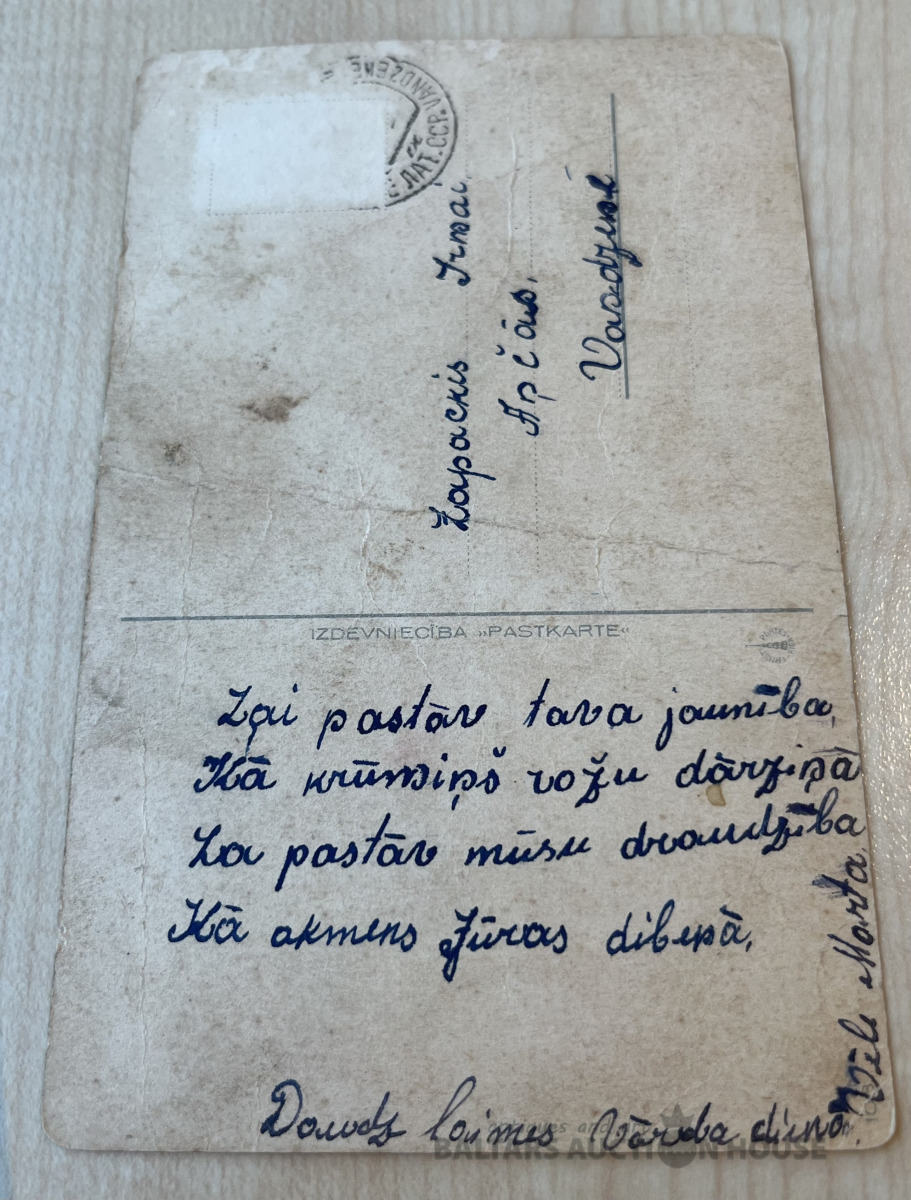 ЛАТ.ССР.VANDZENE
Irmai
Vandzenē
IZDEVNIECĪBA »PASTKARTE«
Lai pastāv tava jaunība,
Kā krūmiņš rožu dārziņā
La pastāv mūsu draudzība
Kā akmens Jūras dibenā.
Daudz laimes Vārda dienā.
Vēl Marta
BALTARS AUCTION HOUSE